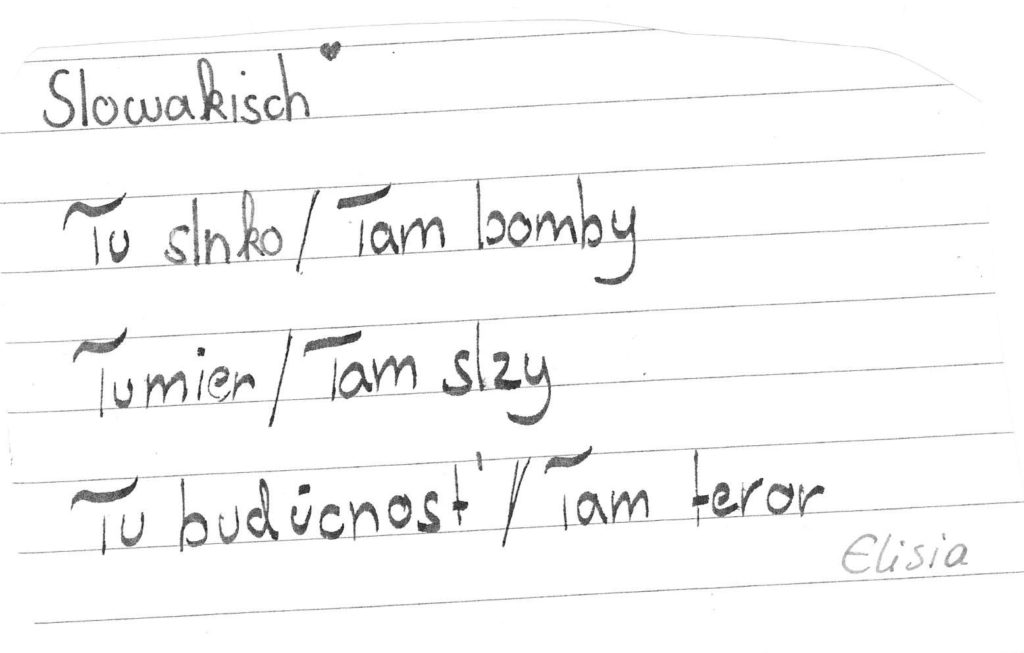 Slowakisch
Tu slnko / Tam bomby
Tu mier / Tam slzy
Tu budúcnosť / Tam teror
Elisia